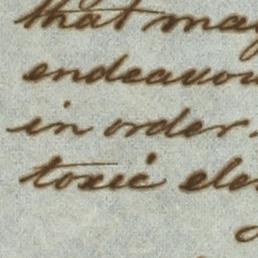 that may
endeavou
in order
toxic ele